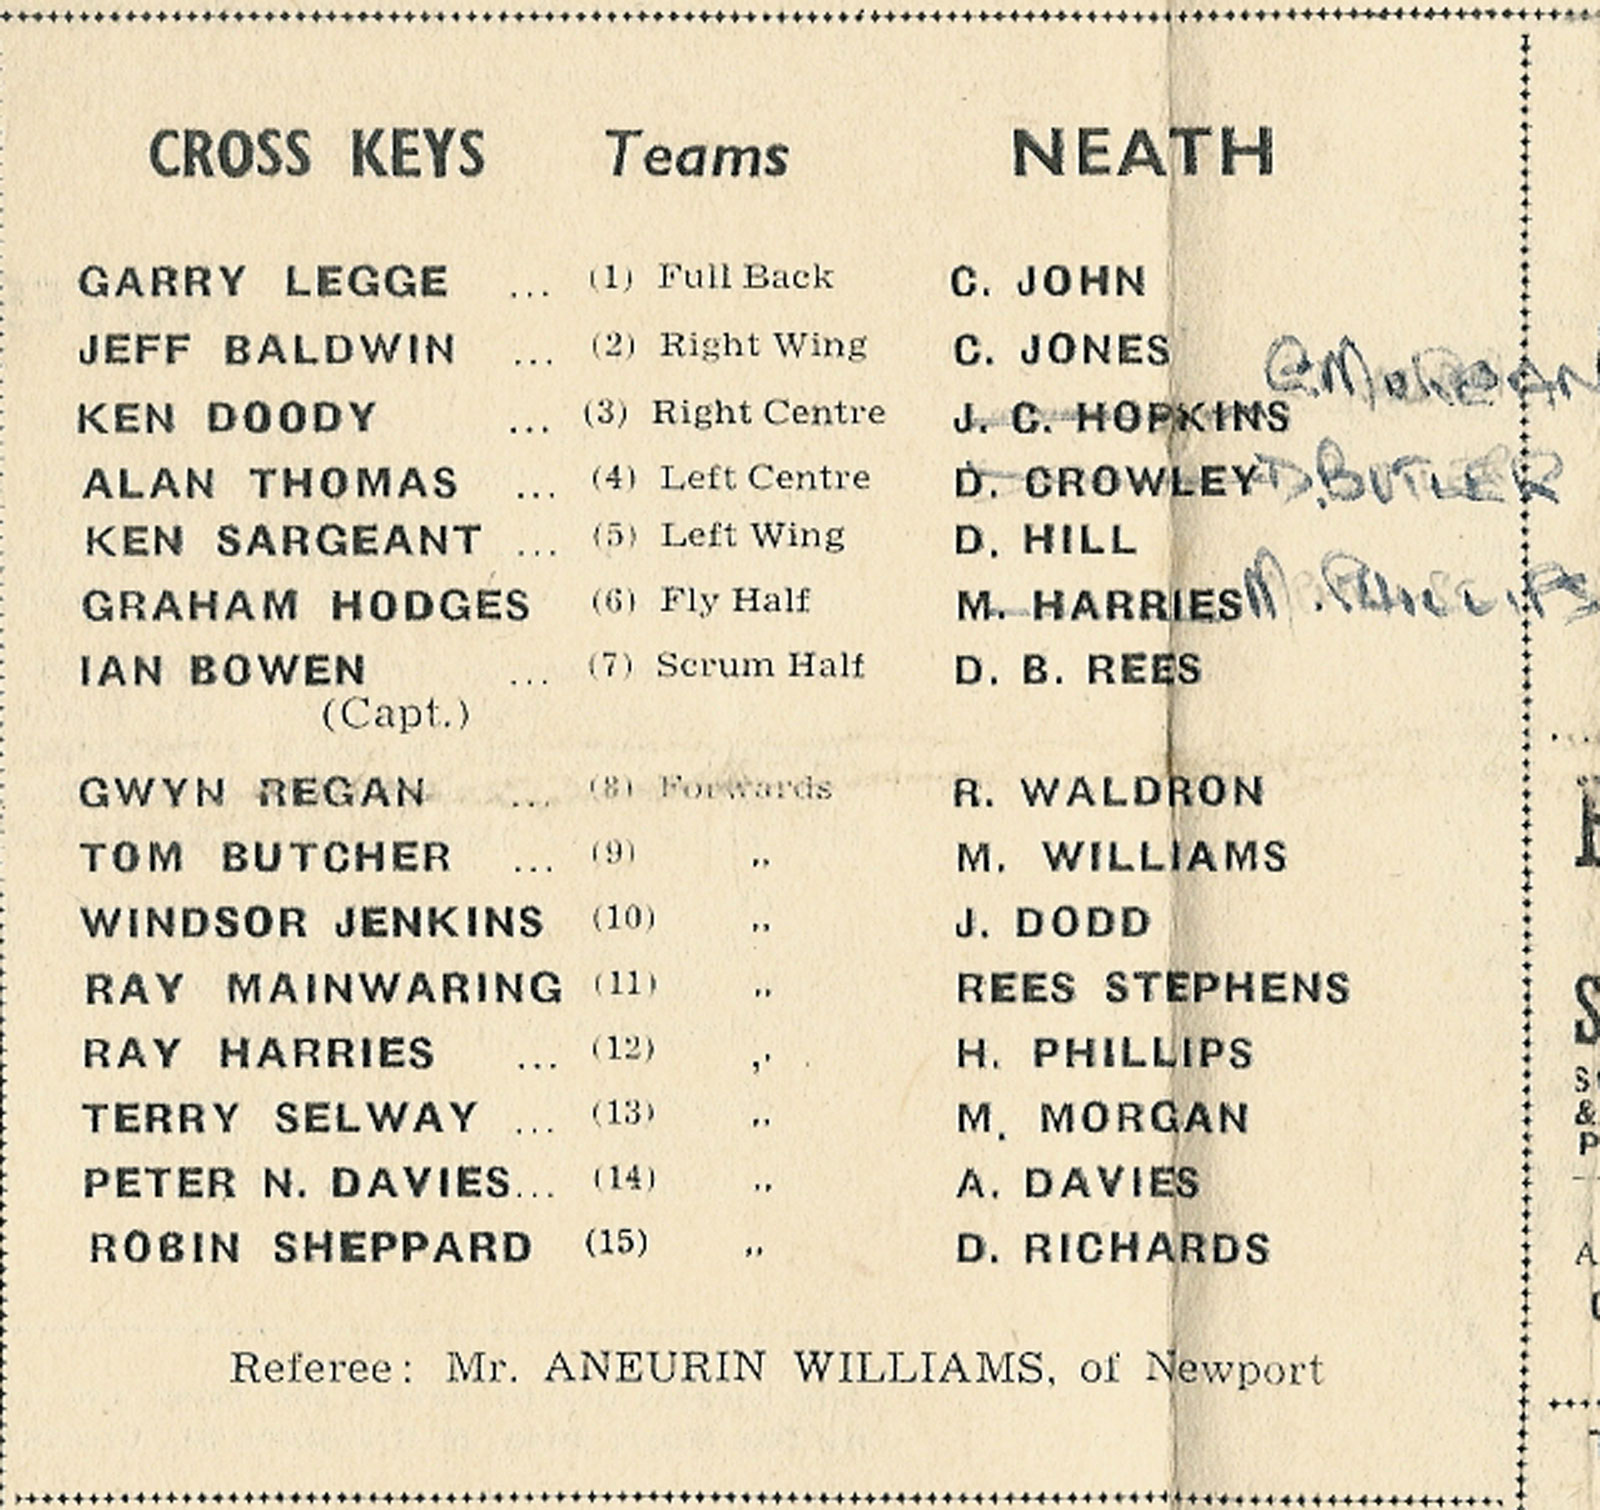 CROSS KEYS Teams NEATH
GARRY LEGGE ... (1) Full Back C. JOHN
JEFF BALDWIN ... (2) Right Wing C. JONES
G. MORGAN
KEN DOODY ... (3) Right Centre J. C. HOPKINS
ALAN THOMAS ... (4) Left Centre D. CROWLEY D. BUTLER
KEN SARGEANT ... (5) Left Wing D. HILL
GRAHAM HODGES (6) Fly Half M. HARRIES M. PHILLIPS
IAN BOWEN ... (7) Scrum Half D. B. REES
(Capt.)
GWYN REGAN ... (8) Forwards R. WALDRON
TOM BUTCHER ... (9) „ M. WILLIAMS
WINDSOR JENKINS (10) „ J. DODD
RAY MAINWARING (11) „ REES STEPHENS
RAY HARRIES ... (12) „ H. PHILLIPS
TERRY SELWAY ... (13) „ M. MORGAN
PETER N. DAVIES... (14) „ A. DAVIES
ROBIN SHEPPARD (15) „ D. RICHARDS
Referee: Mr. ANEURIN WILLIAMS, of Newport